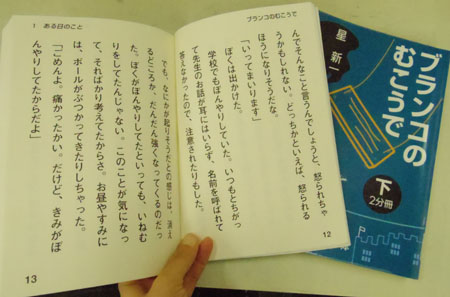 ブランコのむこうで
んでそんなこと言うんでしょうと、怒られちゃ
うかもしれない。どっちかといえば、怒られる
ほうになりそうだな。
「いってまいります」
ぼくは出かけた。
学校でもぼんやりしていた。いつもとちがっ
て先生のお話が耳にはいらず、名前を呼ばれて
答えなかったので、注意されたりもした。
12
1 ある日のこと
でも、なにか起りそうだとの感じは、消え
るどころか、だんだん強くなってくるのだっ
た。ぼくがぼんやりしてたといっても、いねむ
りをしてたんじゃない。このことが気になっ
て、そればかり考えてたからさ。お昼やすみに
は、ボールがぶつかってきたりしちゃった。
「ごめんよ。痛かったかい。だけど、きみがぼ
んやりしてたからだよ」
13
ブランコの
むこうで
星 新一
下
2分冊